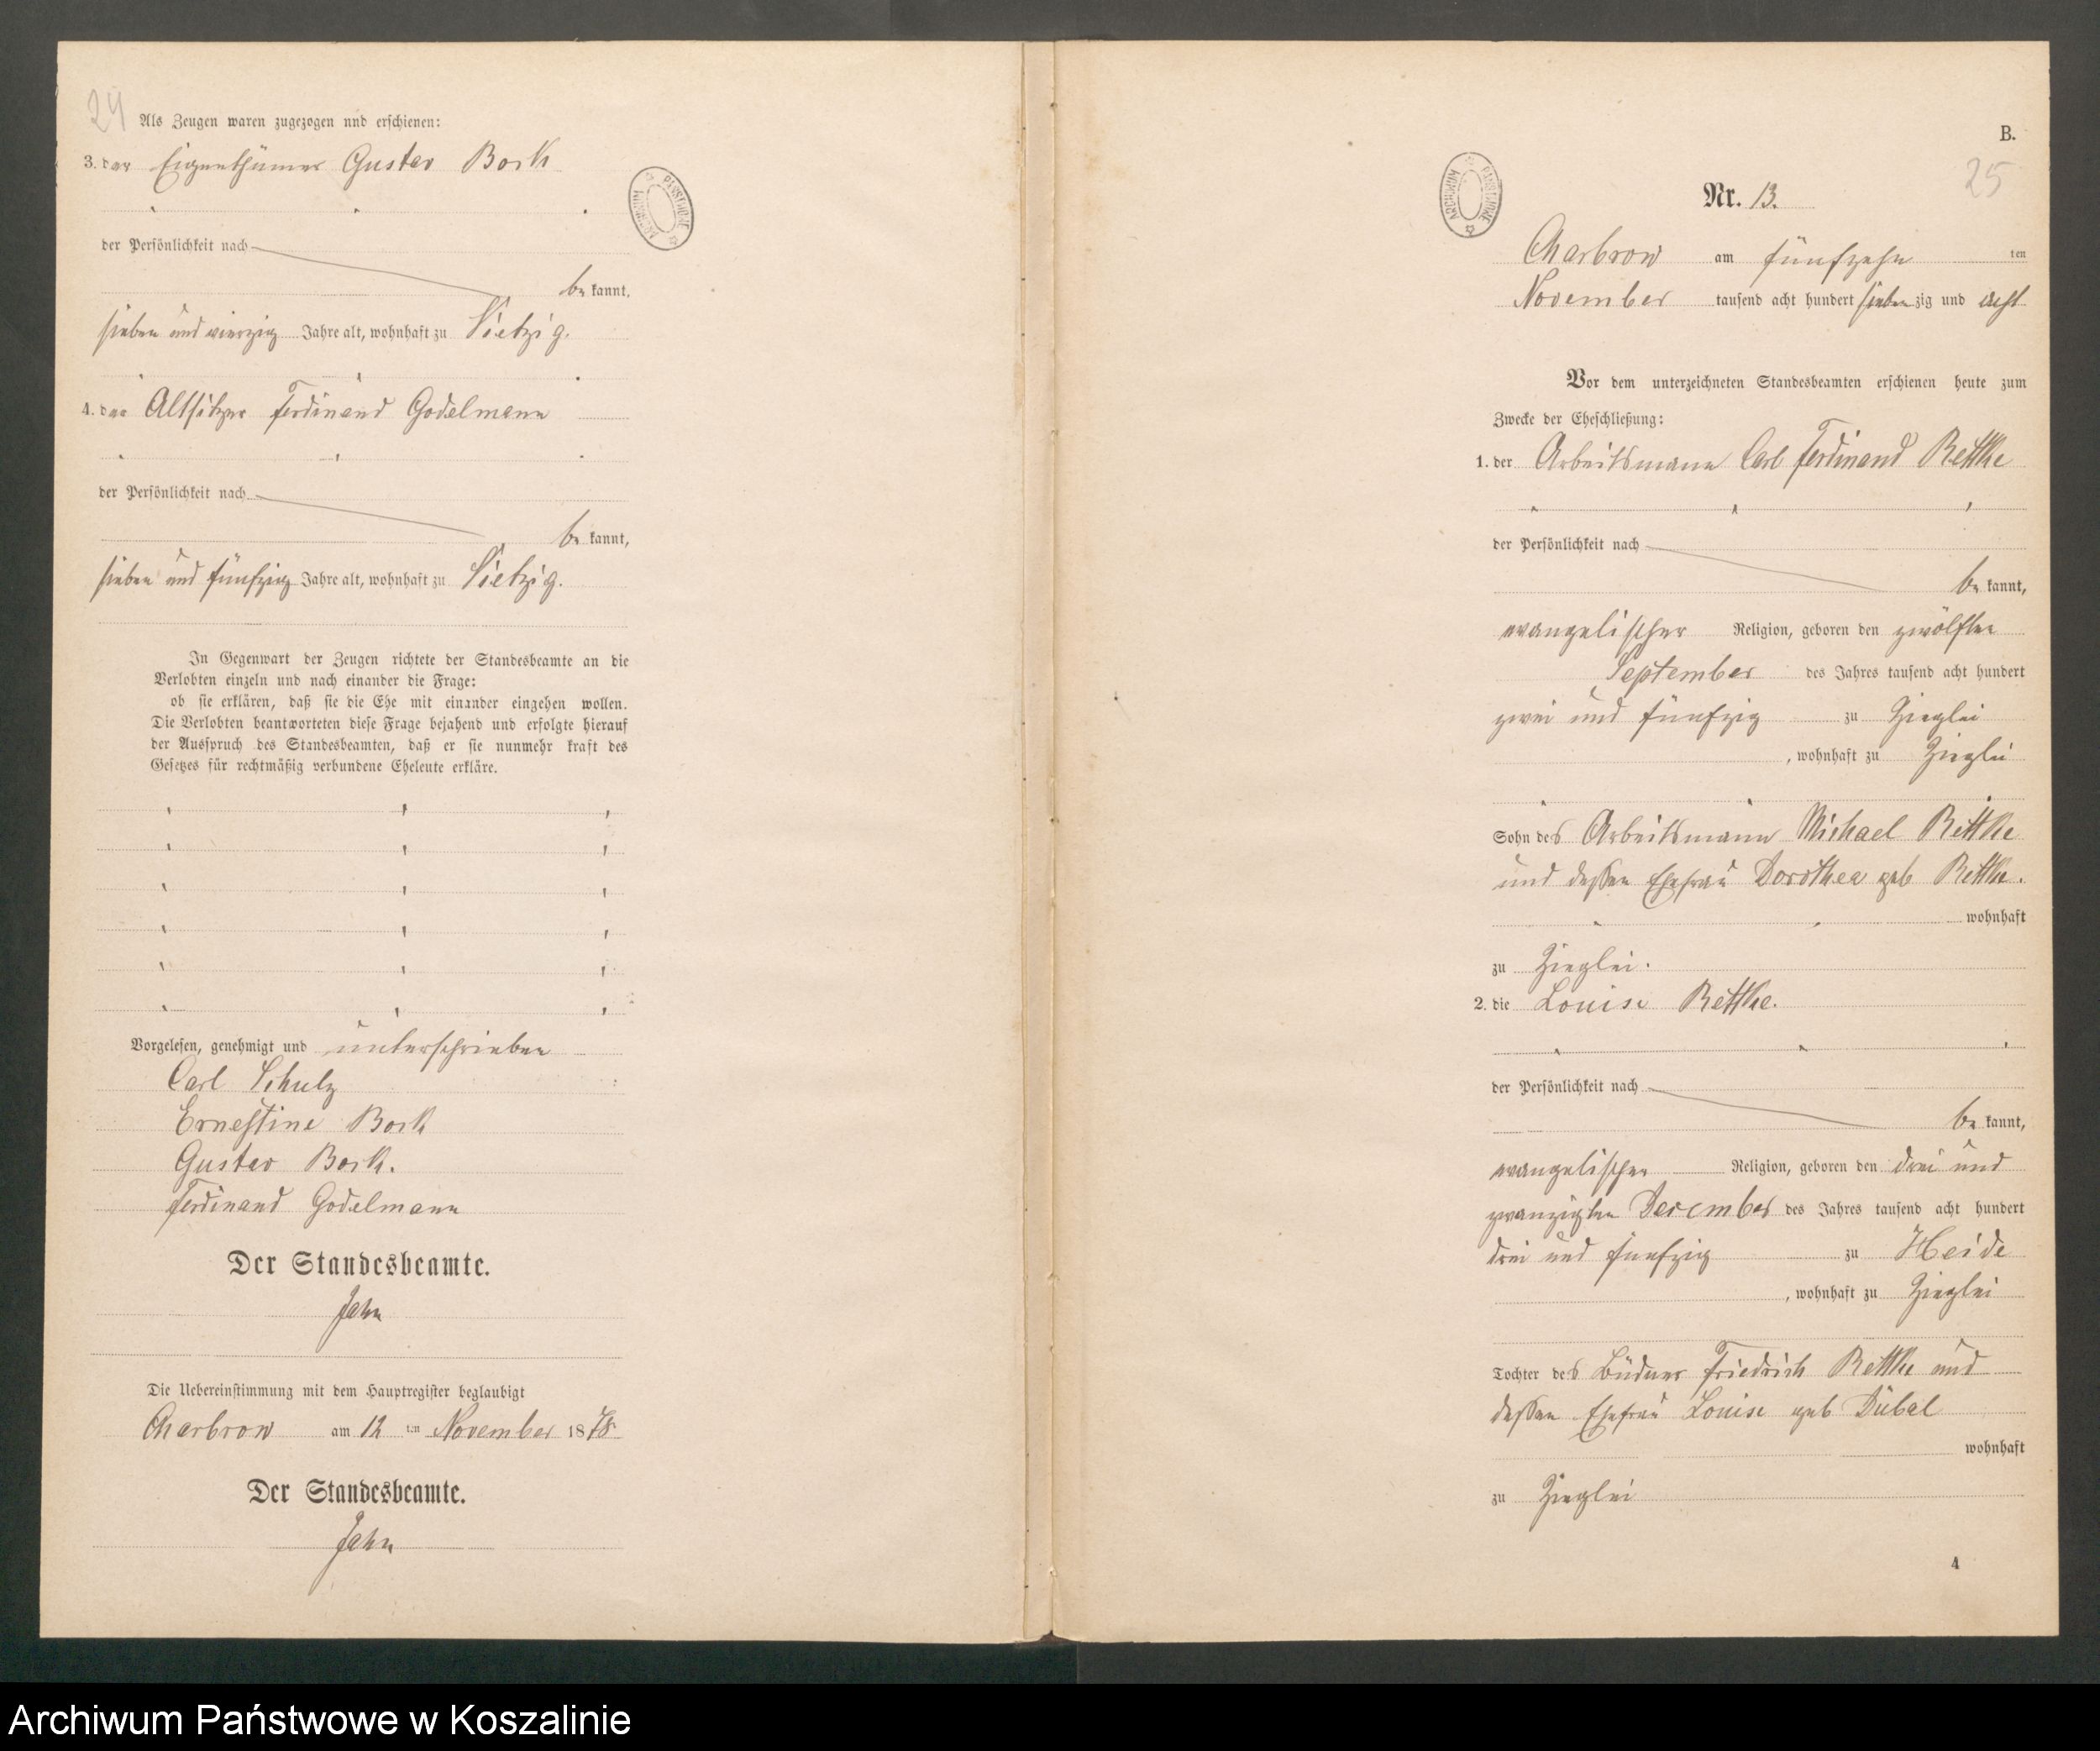 24
Als Zeugen waren zugezogen und erschienen:
3. der Eigenthümer Gustav Bork
der Persönlichkeit nach
be kannt,
sieben und vierzig Jahre alt, wohnhaft zu Vietzig.
4. der Altsitzer Ferdinand Godelmann
der Persönlichkeit nach
be kannt,
sieben und fünfzig Jahre alt, wohnhaft zu Vietzig.
In Gegenwart der Zeugen richtete der Standesbeamte an die
Verlobten einzeln und nach einander die Frage:
ob sie erklären, daß sie die Ehe mit einander eingehen wollen.
Die Verlobten beantworteten diese Frage bejahend und erfolgte hierauf
der Ausspruch des Standesbeamten, daß er sie nunmehr kraft des
Gesetzes für rechtmäßig verbundene Eheleute erkläre.
Vorgelesen, genehmigt und unterschrieben
Carl Schulz
Ernestine Bork
Gustav Bork.
Ferdinand Godelmann
Der Standesbeamte.
Jahn
Die Uebereinstimmung mit dem Hauptregister beglaubigt
Charbrow am 12 ten November 1878
Der Standesbeamte.
Jahn
ARCHIWUM PAŃSTWOWE
B.
25
ARCHIWUM PAŃSTWOWE
Nr. 13.
Charbrow am fünfzehn ten
November tausend acht hundert sieben zig und acht
Vor dem unterzeichneten Standesbeamten erschienen heute zum
Zwecke der Eheschließung:
1. der Arbeitsmann Carl Ferdinand Rettke
der Persönlichkeit nach
be kannt,
evangelischer Religion, geboren den zwölften
September des Jahres tausend acht hundert
zwei und fünfzig zu Zieglei
, wohnhaft zu Zieglei
Sohn des Arbeitsmann Michael Rettke
und dessen Ehefrau Dorothea geb Rettke.
wohnhaft
zu Zieglei.
2. die Louise Rettke.
der Persönlichkeit nach
be kannt,
evangelischer Religion, geboren den drei und
zwanzigten December des Jahres tausend acht hundert
drei und fünfzig zu Heide
, wohnhaft zu Zieglei
Tochter des Büdner Friedrich Rettke und
dessen Ehefrau Louise geb Dübal
wohnhaft
zu Zieglei
4
Archiwum Państwowe w Koszalinie